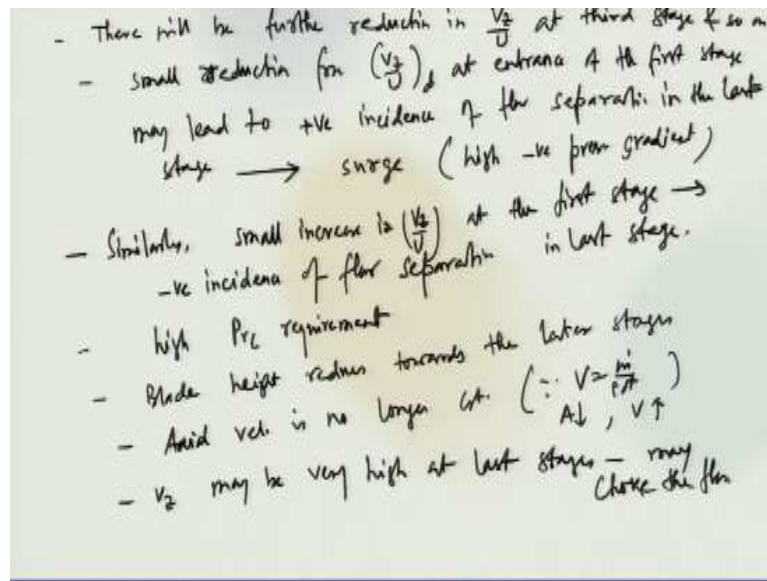 - There will be further reduction in V₂/U at third stage & so on
- small reduction from (V₂/U)d at entrance of the first stage
may lead to +ve incidence of flow separation in the last
stage → surge (high -ve press gradient)
- Similarly, small increase in (V₂/U) at the first stage →
-ve incidence of flow separation in last stage.
- high Prc requirement
- Blade height reduces towards the later stages
- Axial vel. is no longer cst. (∵ V = ṁ/ρA)
A↓, V↑
- V₂ may be very high at last stages - may
choke the flow